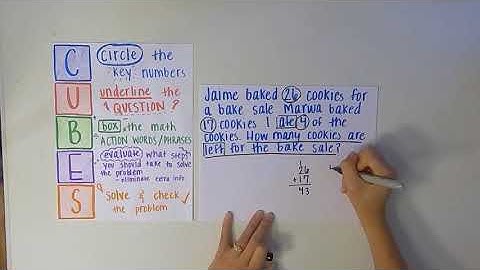 C circle the
key numbers
U underline the
QUESTION?
B box the math
ACTION WORDS/PHRASES
E evaluate what steps
you should take to solve
the problem
- eliminate extra info
S solve & check
the problem
Jaime baked 26 cookies for
a bake sale Marwa baked
17 cookies I ate 9 of the
cookies How many cookies are
left for the bake sale?
1
26
+17
43